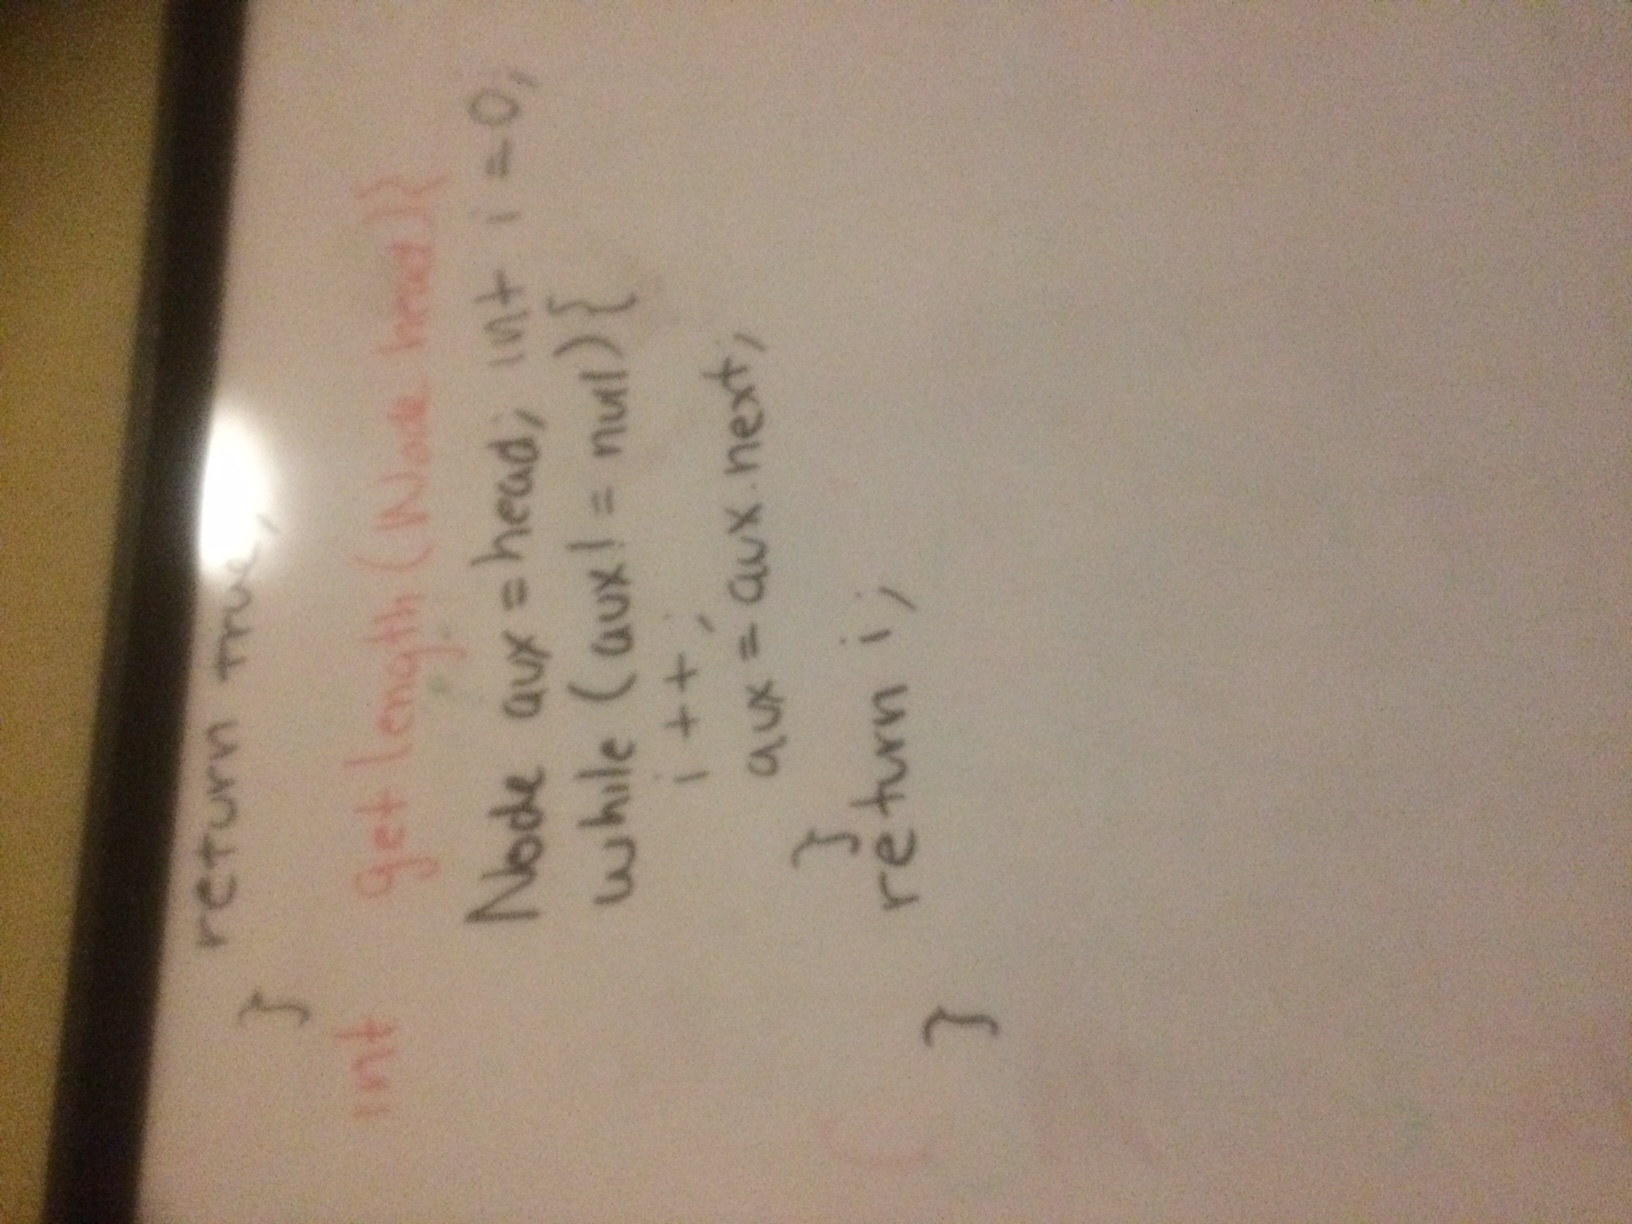 return true;
}
int getlength(Node head){
Node aux = head; int i = 0;
while (aux != null){
i ++;
aux = aux.next;
}
return i;
}